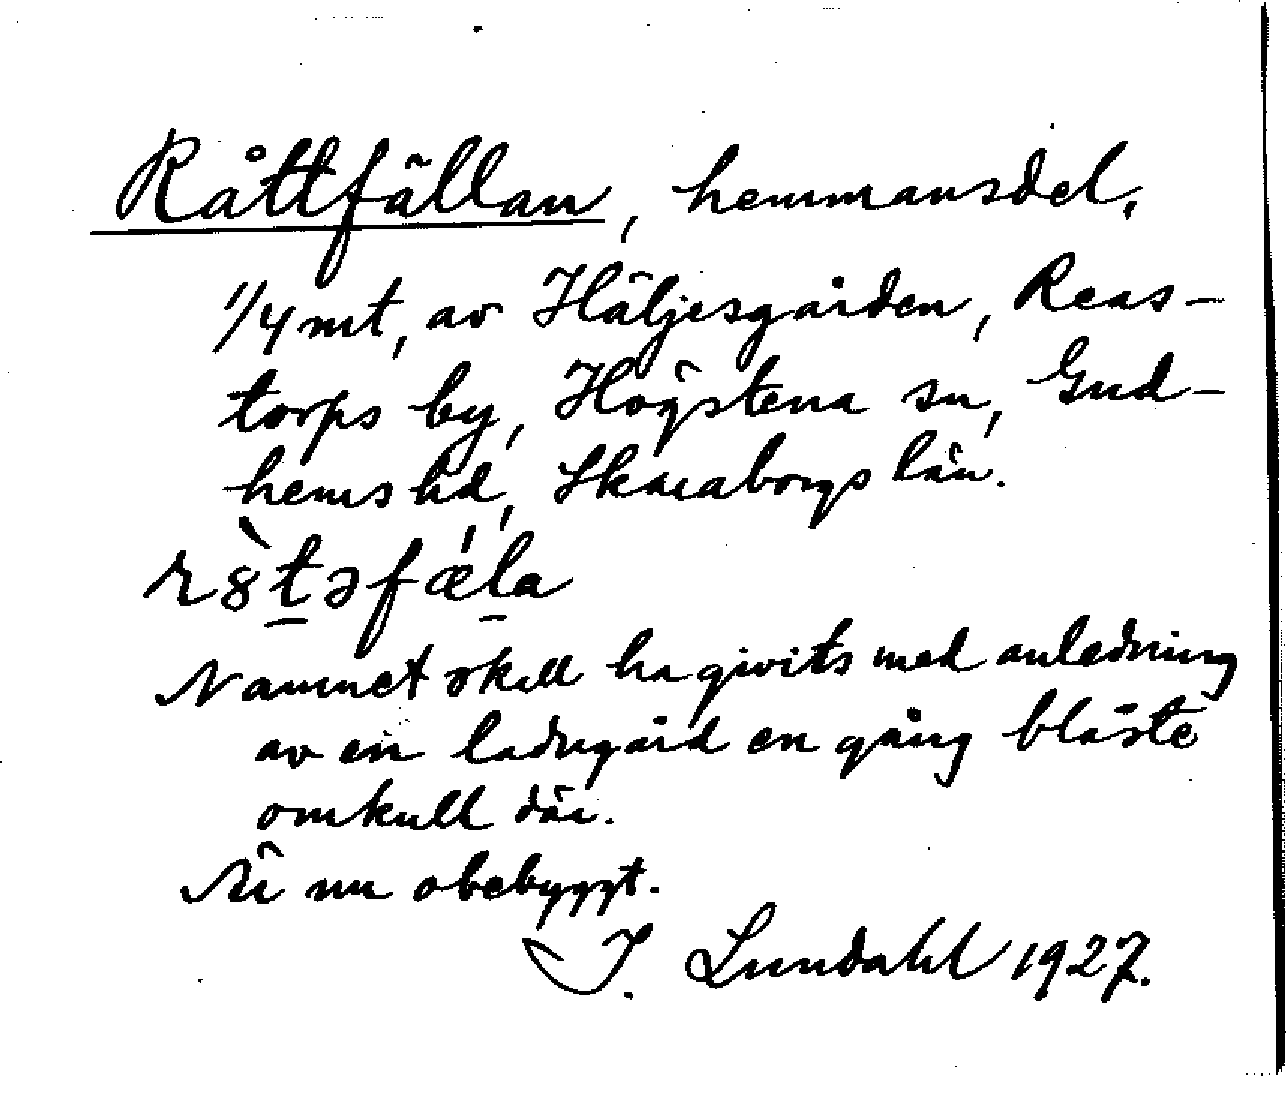 Råttfällan, hemmansdel,
1/4 mt, av Häljesgården, Reas-
torps by, Högstena sn, Gud-
hems hd, Skaraborgs län.
r8̀t̠əfǽl̠a
Namnet skall ha givits med anledning
av en ladugård en gång blåste
omkull där.
Är nu obebyggt.
I. Lundahl 1927.